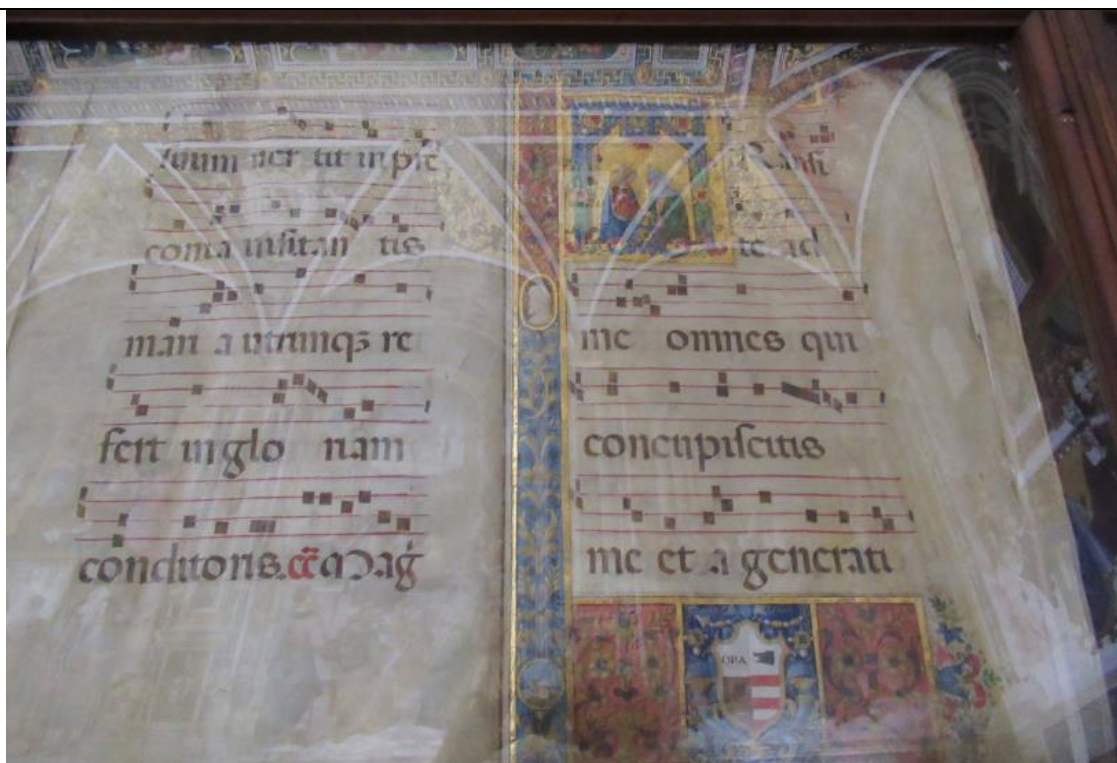 uer tit in pre
conia uisitan tis
mari a utrunqꝫ re
fert in glo riam
conditoris. aꝺ mag̃
Ransi
te ad
me omnes qui
concupiscitis
me et a generati
OPA